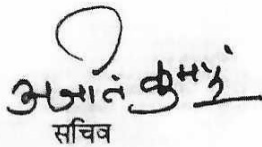 अजीत कुमार
सचिव